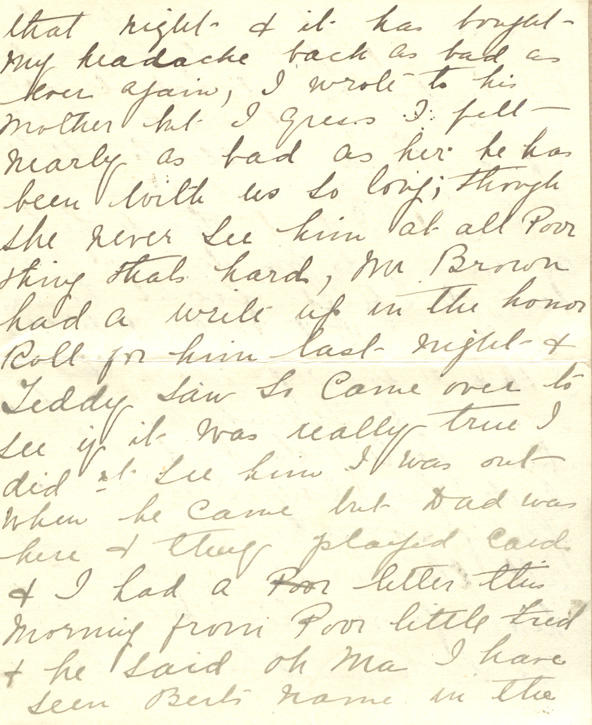 that night & it has bought
my headache back as bad as
ever again, I wrote to his
Mother but I guess I felt
nearly as bad as her he has
been with us so long; though
she never see him at all Poor
thing thats hard, Mr. Brown
had a write up in the honor
Roll for him last night &
Teddy saw so came over to
see if it was really true I
did nt see him I was out
when he came but Dad was
here & they played cards
& I had a Poor letter this
morning from Poor little Fred
& he said oh Ma I have
seen Berts name in the